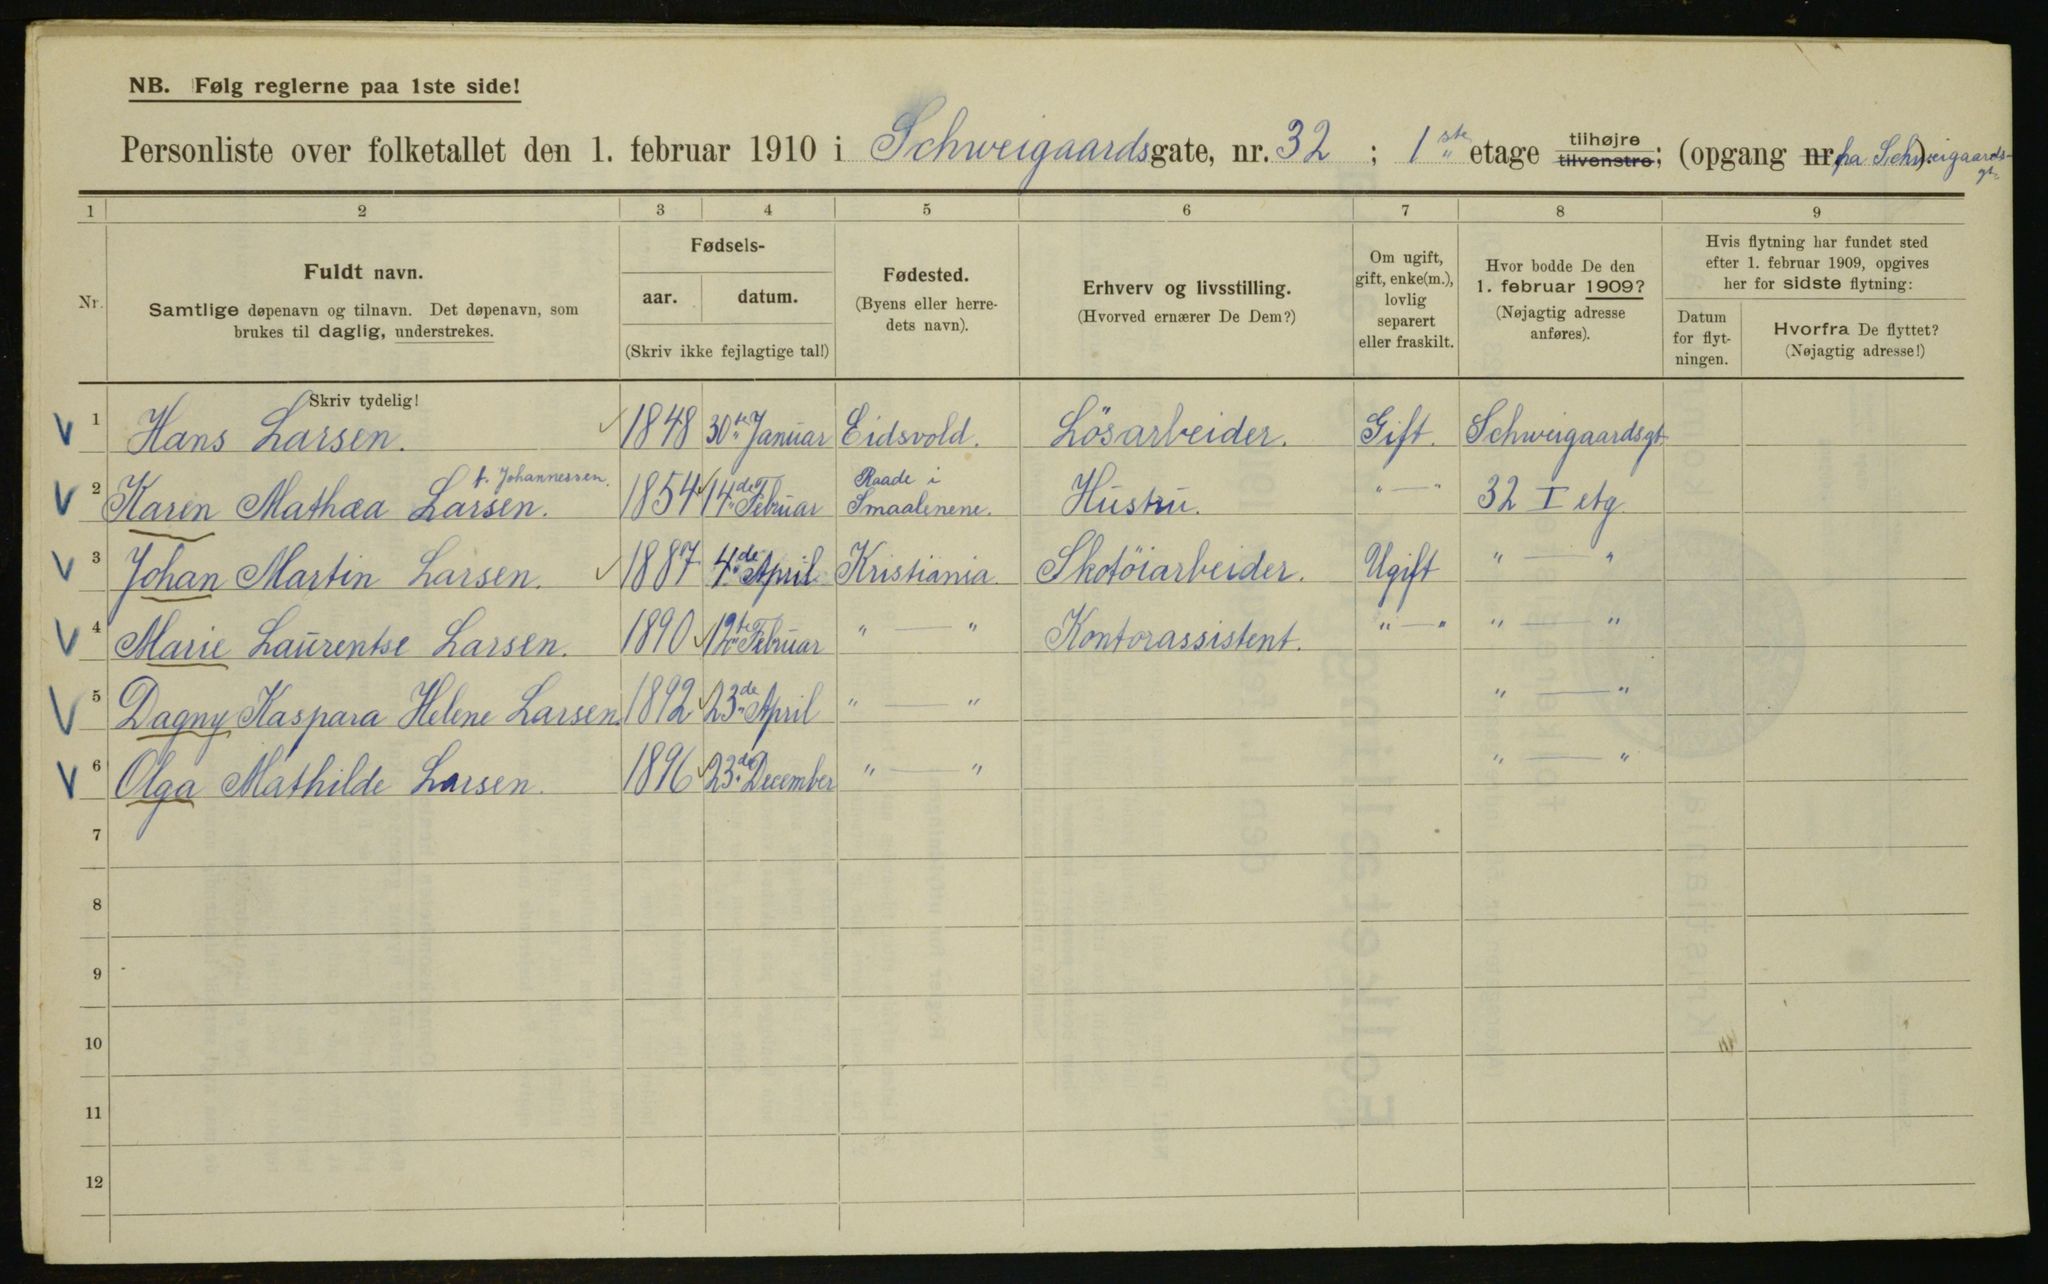 NB. Følg reglerne paa 1ste side!
Personliste over folketallet den 1. februar 1910 i Schweigaardsgate, nr. 32 ; 1ste etage tilhøjre tilvenstre; (opgang nr. fra Schweigaards-gt.)
1 2 3 4 5 6 7 8 9
Nr.
Fuldt navn.
Samtlige døpenavn og tilnavn. Det døpenavn, som
brukes til daglig, understrekes.
Fødsels-
aar. datum.
(Skriv ikke fejlagtige tal!)
Fødested.
(Byens eller herre-
dets navn).
Erhverv og livsstilling.
(Hvorved ernærer De Dem?)
Om ugift,
gift, enke(m.),
lovlig
separert
eller fraskilt.
Hvor bodde De den
1. februar 1909?
(Nøjagtig adresse
anføres).
Hvis flytning har fundet sted
efter 1. februar 1909, opgives
her for sidste flytning:
Datum
for flyt-
ningen.
Hvorfra De flyttet?
(Nøjagtig adresse!)
Skriv tydelig!
1 Hans Larsen. 1848 30te Januar Eidsvold. Lösarbeider. Gift. Schweigaardsgt
2 Karen Mathea Larsen. f. Johannessen. 1854 14de Februar Raade i Smaalenene. Hustru. " — " 32 I etg
3 Johan Martin Larsen. 1887 4de April Kristiania. Skotöiarbeider. Ugift " — "
4 Marie Laurentse Larsen. 1890 12te Februar " — " Kontorassistent. " — " " — "
5 Dagny Kaspara Helene Larsen. 1892 23de April " — " " — "
6 Olga Mathilde Larsen. 1896 23de December " — " " — "
7
8
9
10
11
12